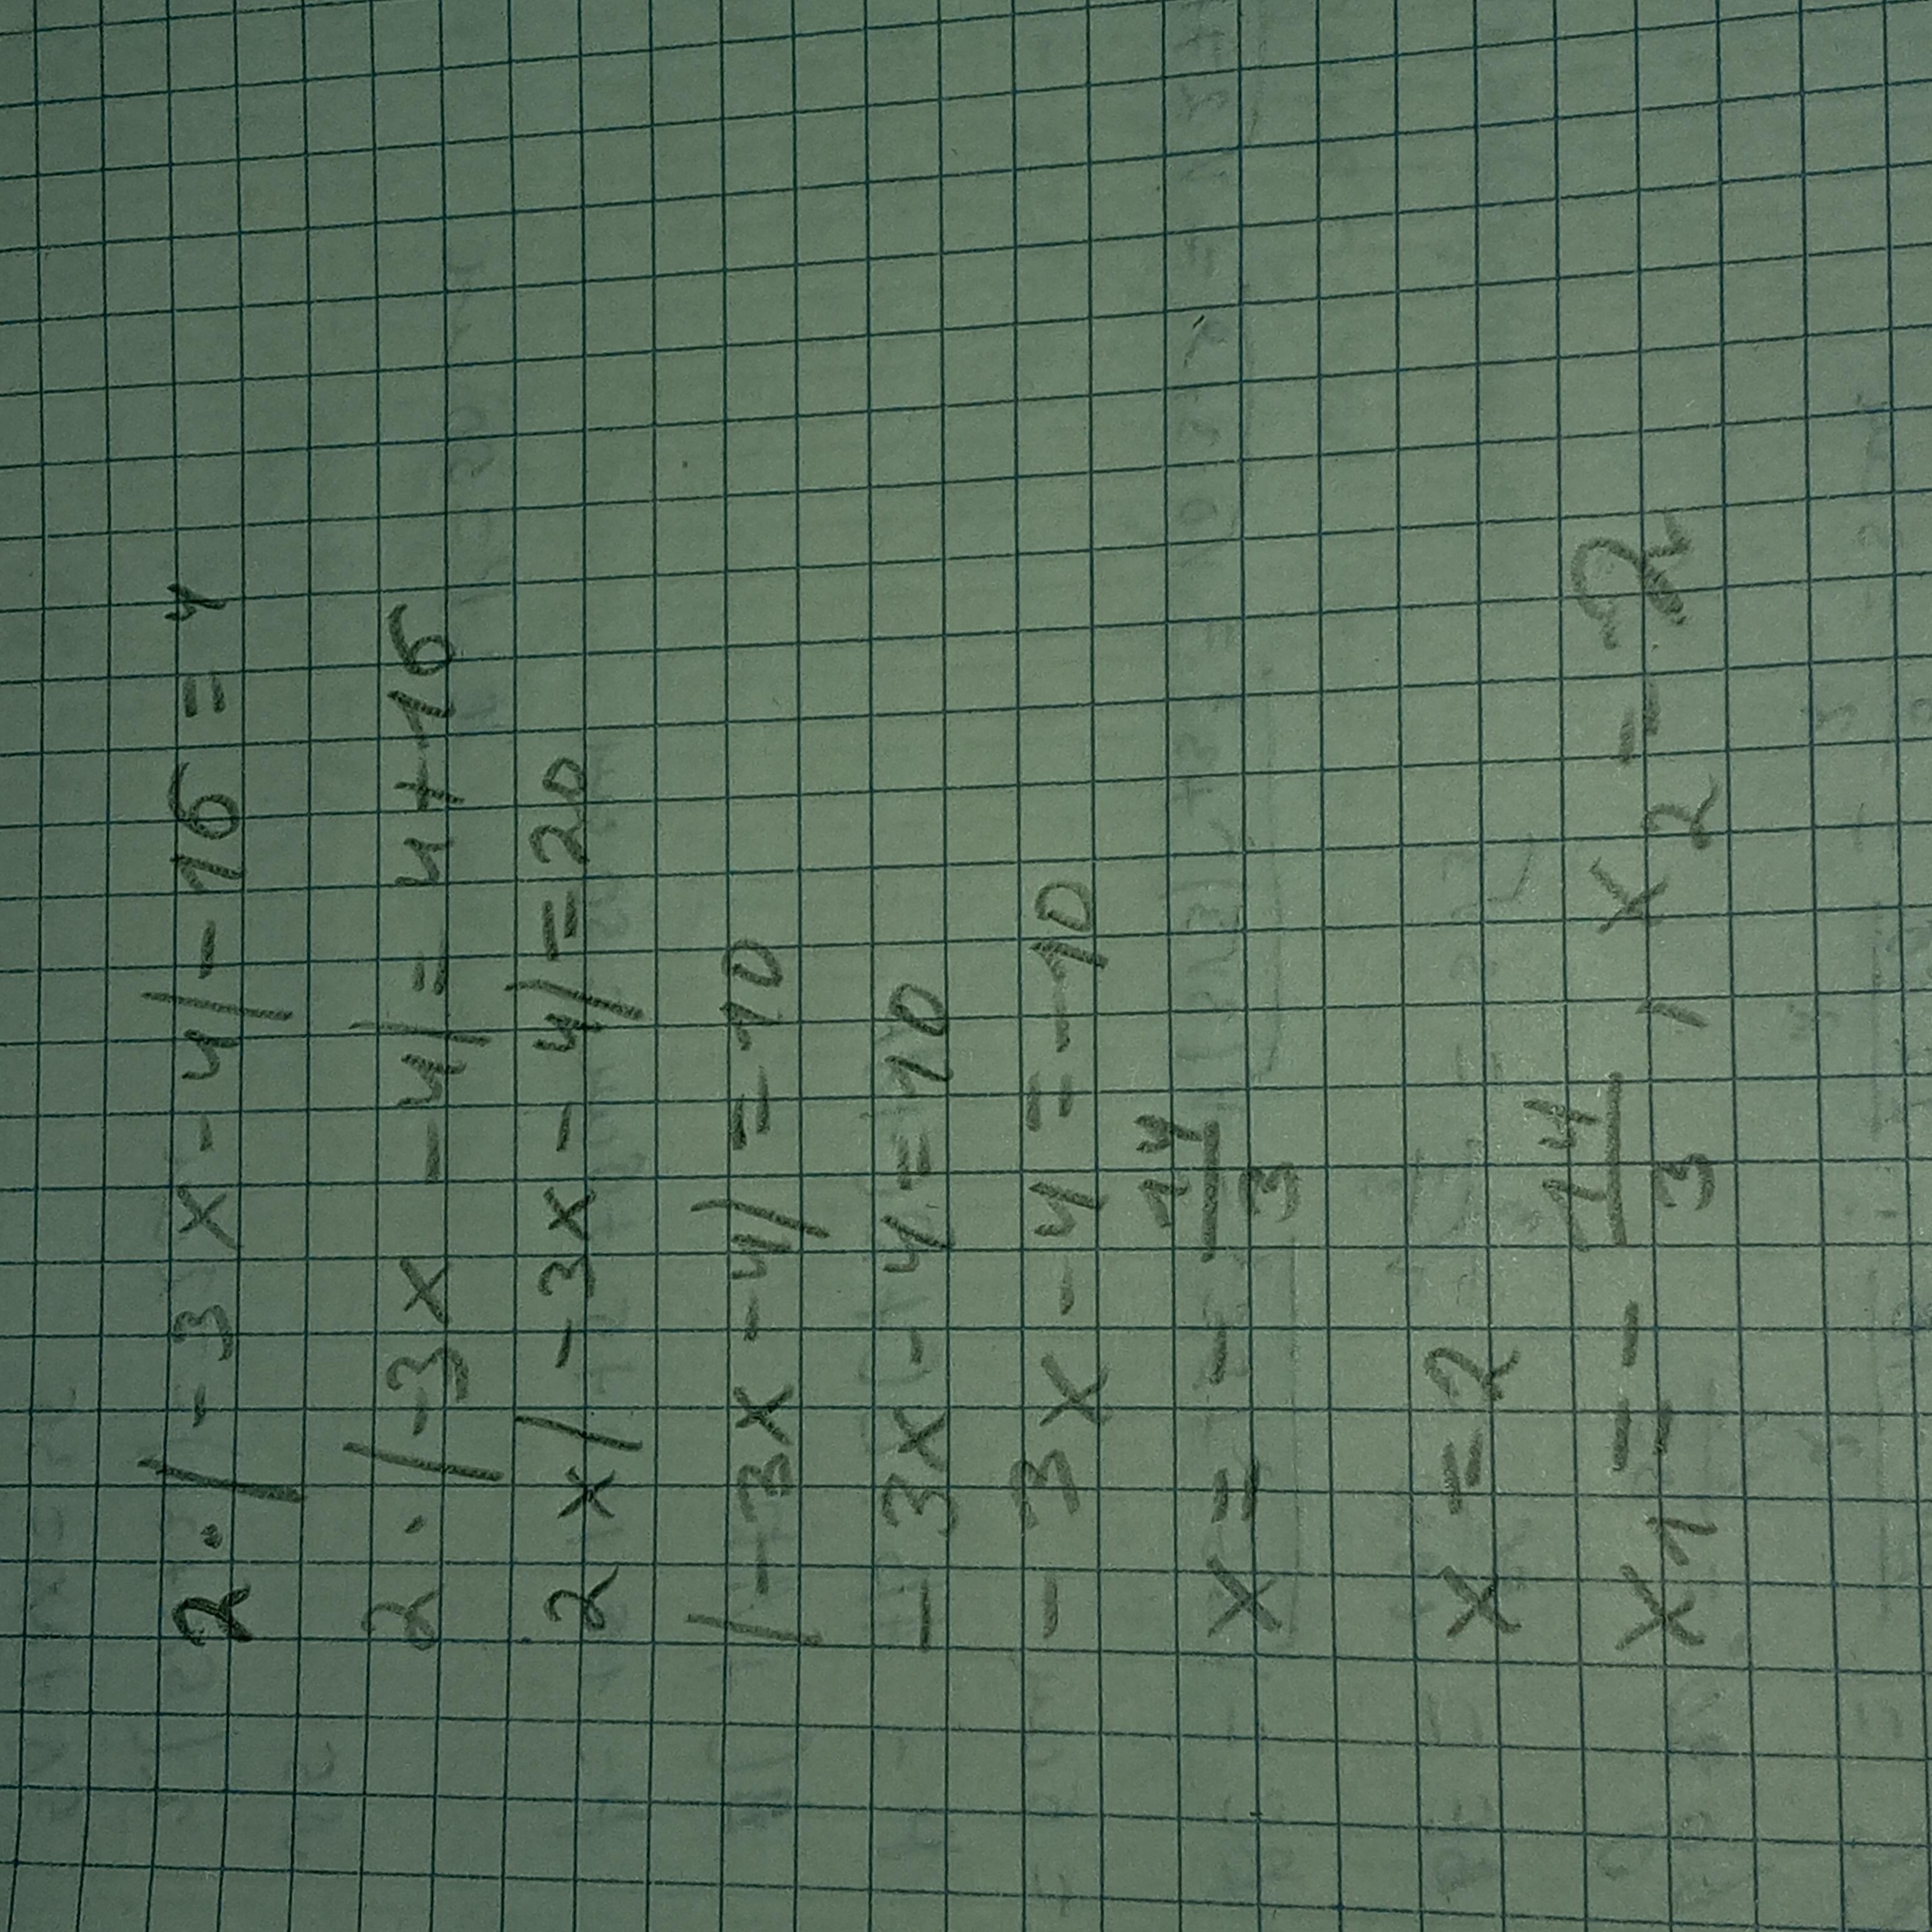 2·|-3x-4|-16=4
2·|-3x-4|=4+16
2x|-3x-4|=20
|-3x-4|=10
-3x-4=10
-3x-4=-10
x=-14/3
x=2
x1=-14/3, x2=2